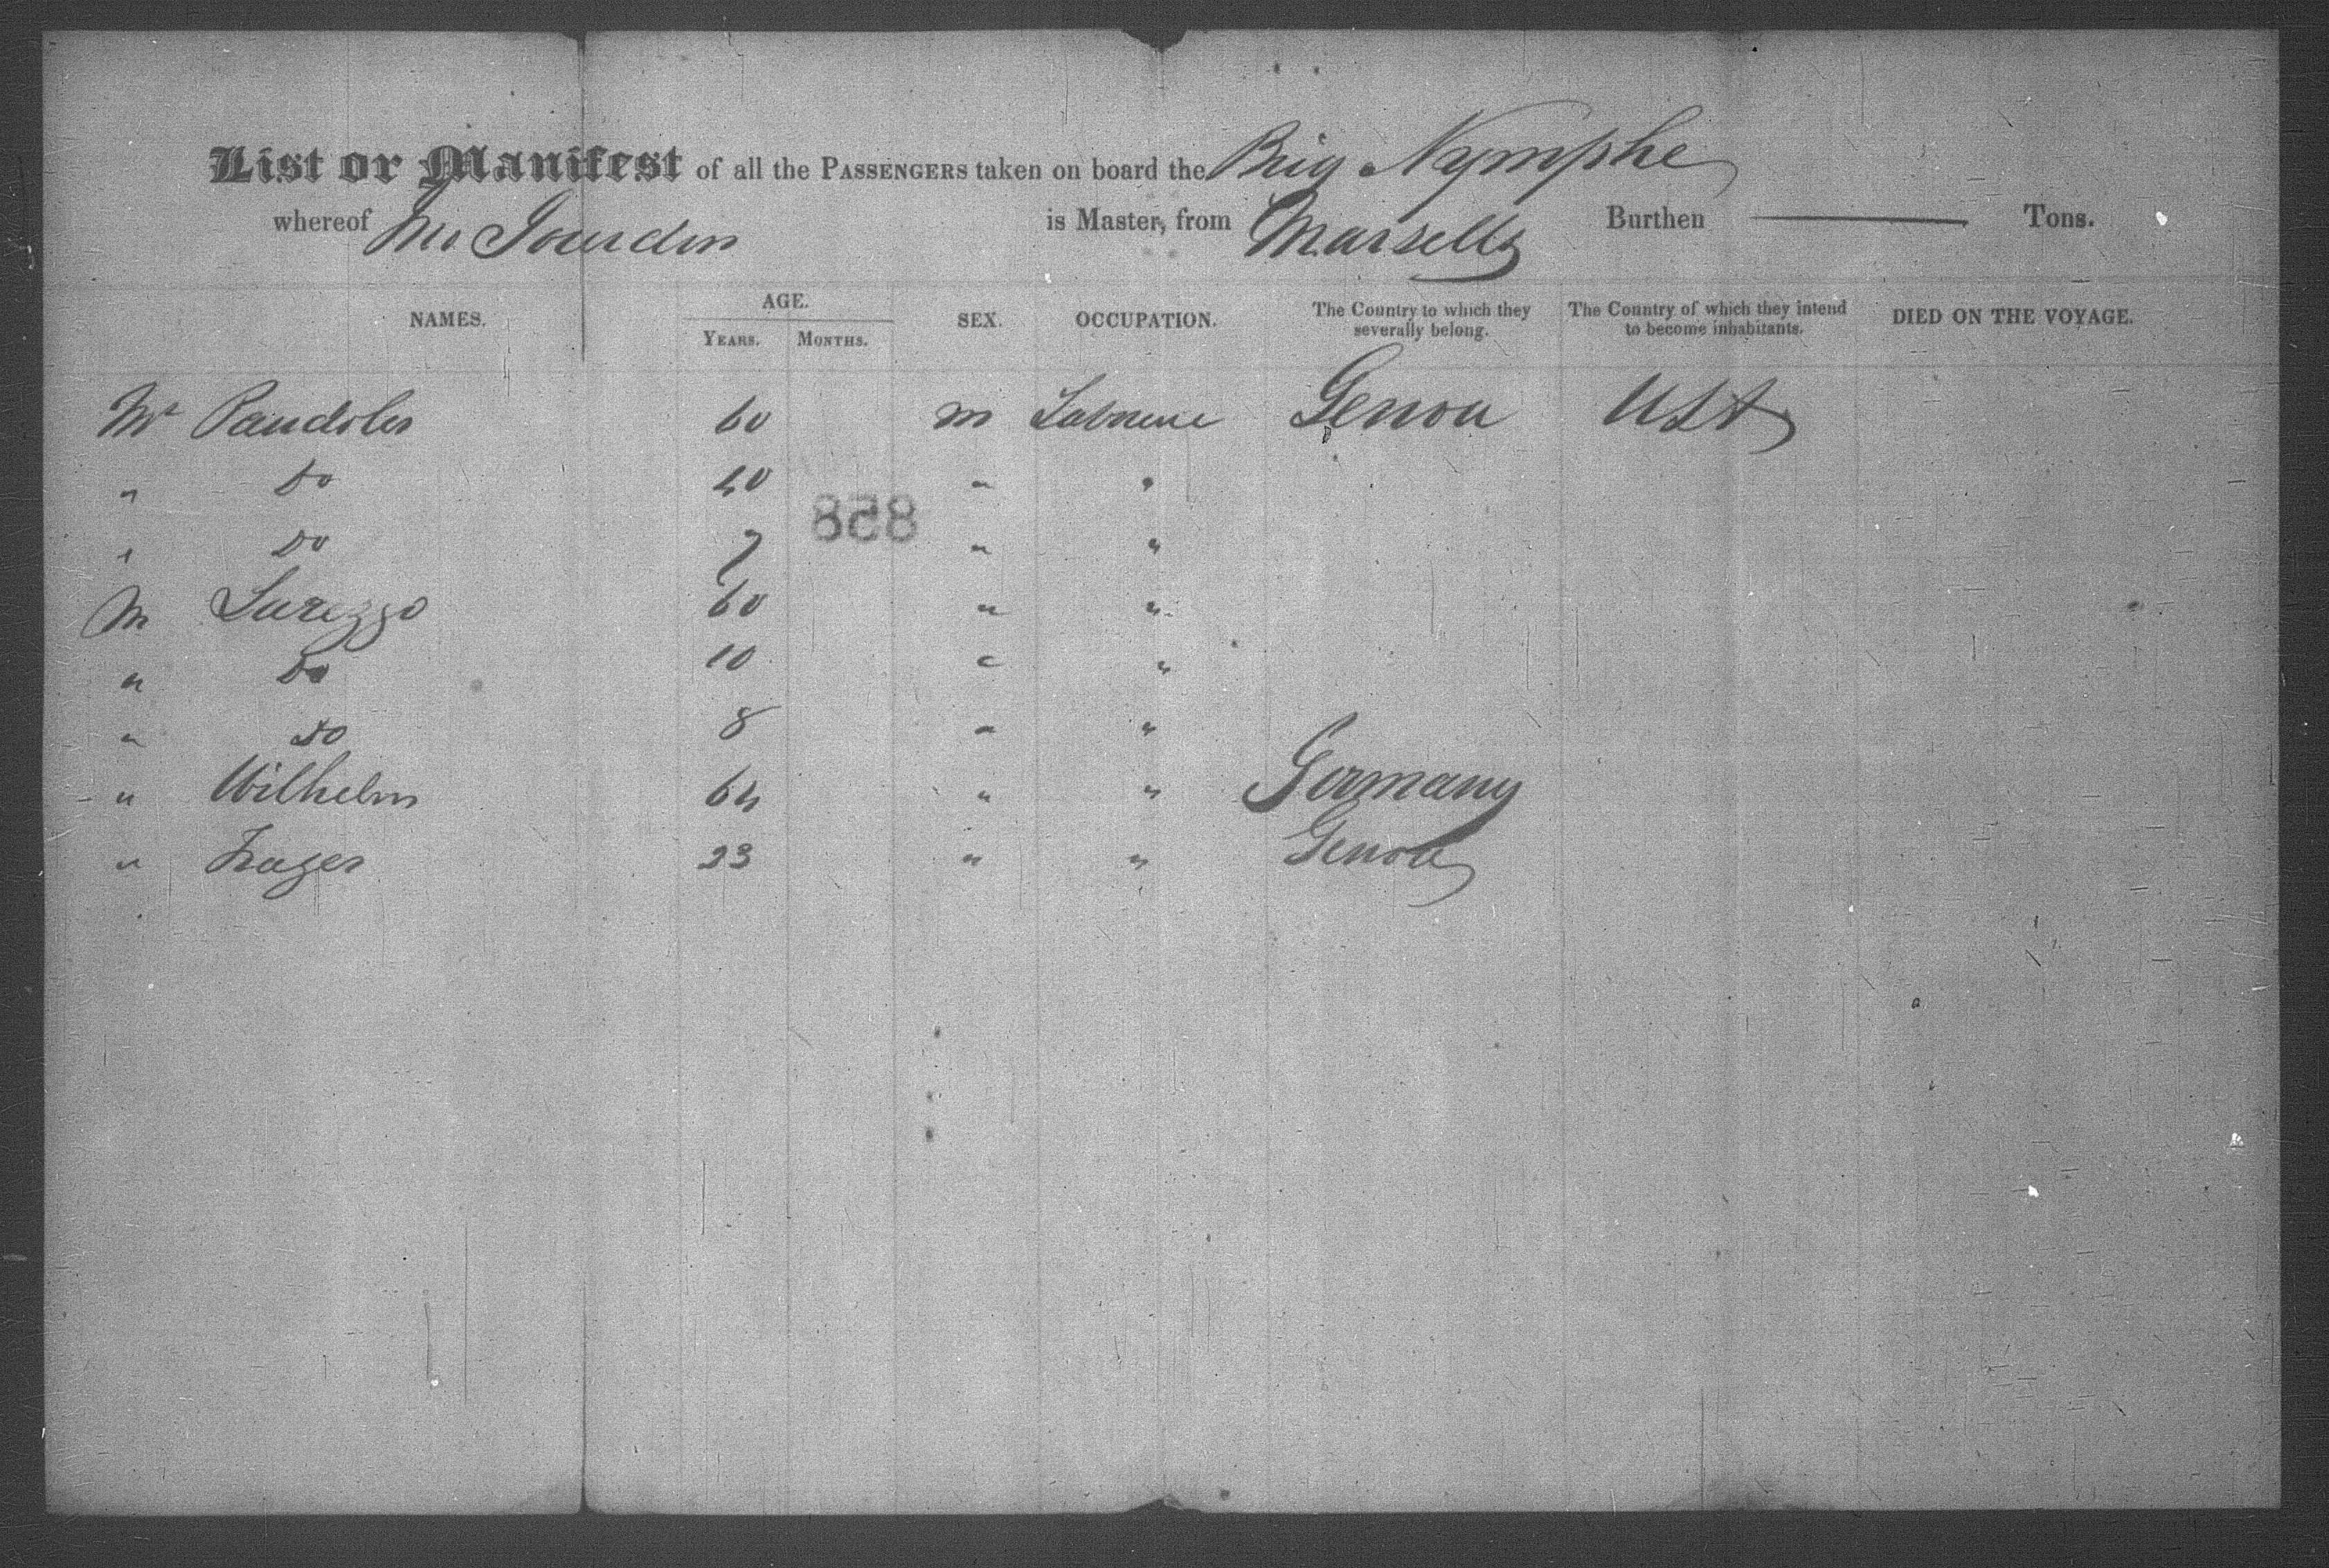 List or Manifest of all the PASSENGERS taken on board the Brig Nymphe
whereof is Master, from Marsells Burthen — Tons.
NAMES. AGE. SEX. OCCUPATION. The Country to which they severally belong. The Country of which they intend to become inhabitants. DIED ON THE VOYAGE.
YEARS. MONTHS.
Mr 60 m Genoa USA
" Do 40 " "
858
" Do 7 " "
M 60 " "
" Do 10 " "
" Do 8 " "
" Wilhelm 64 " " Germany
" 23 " " Genoa